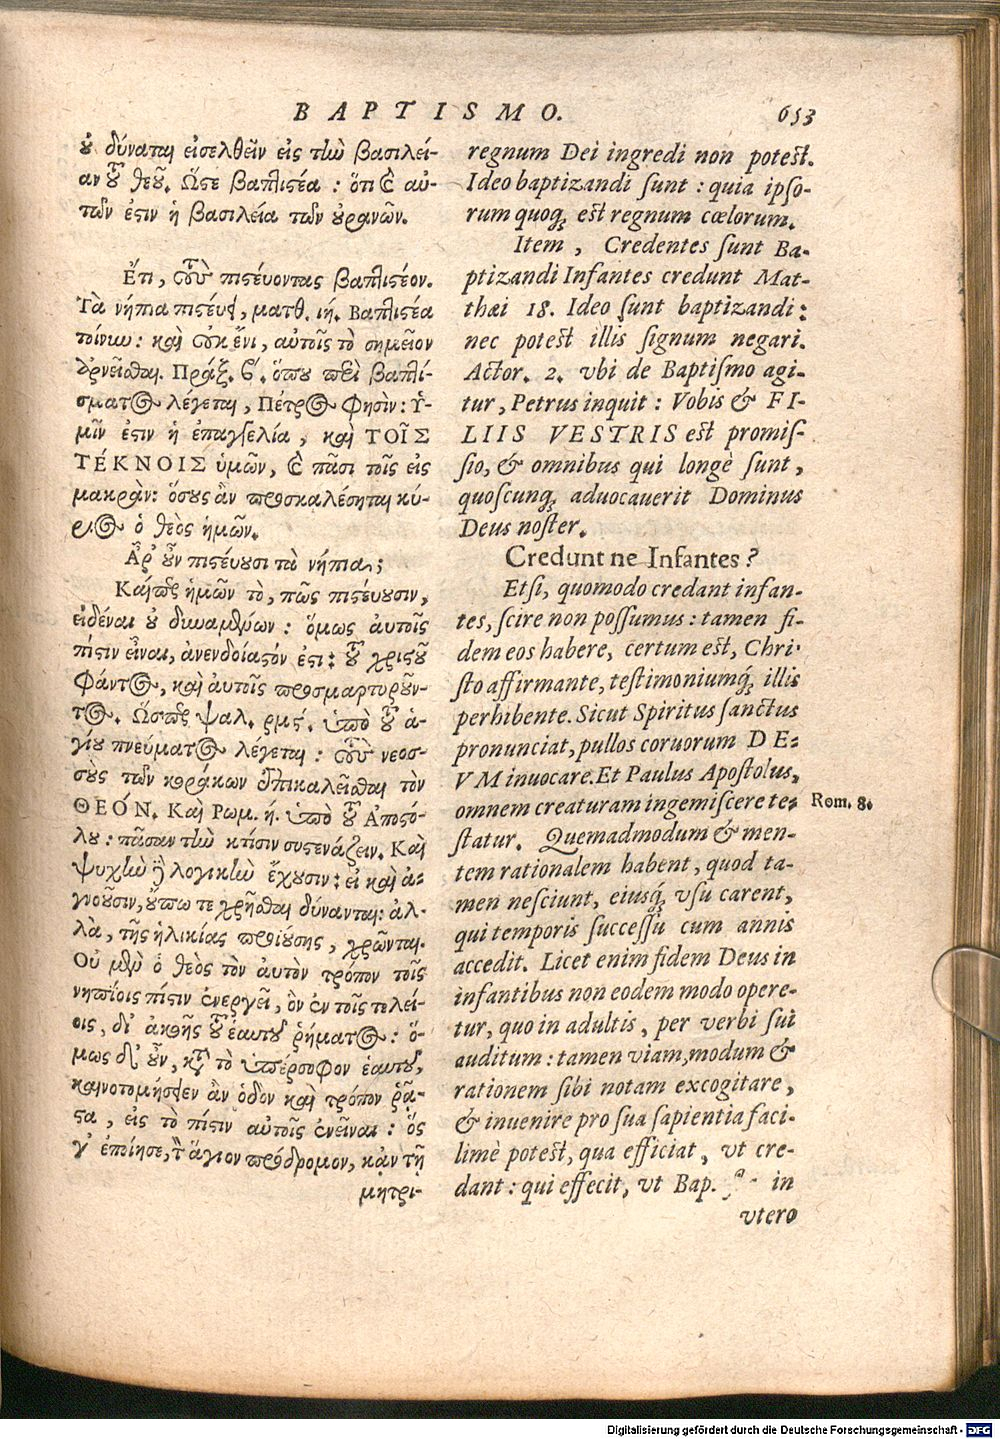 BAPTISMO. 653
οὐ δύναται εἰσελθεῖν εἰς τὴν βασιλεί-
αν τοῦ θεοῦ. Ὥστε βαπτιστέα : ὅτι καὶ αὐ-
τῶν ἐστιν ἡ βασιλεία τῶν οὐρανῶν.
Ἔτι, τοὺς πιστεύοντας βαπτιστέον.
Τὰ νήπια πιστεύει, ματθ. ιή. Βαπτιστέα
τοίνυν : καὶ οὐκ ἔνι, αὐτοῖς τὸ σημεῖον
ἀρνεῖσθαι. Πράξ. β. ὅπου περὶ βαπτί-
σματος λέγεται, Πέτρος φησὶν : Ὑ-
μῖν ἐστιν ἡ ἐπαγγελία, καὶ ΤΟΙ͂Σ
ΤΈΚΝΟΙΣ ὑμῶν, καὶ πᾶσι τοῖς εἰς
μακράν : ὅσους ἂν προσκαλέσηται κύ-
ριος ὁ θεὸς ἡμῶν.
Ἆρ' οὖν πιστεύουσι τὰ νήπια;
Καίπερ ἡμῶν τὸ, πῶς πιστεύουσιν,
εἰδέναι οὐ δυναμένων : ὅμως αὐτοῖς
πίστιν εἶναι, ἀνενδοίαστόν ἐστι : τοῦ χριστοῦ
φάντος, καὶ αὐτοῖς προσμαρτυροῦν-
τος. Ὥσπερ ψαλ. ρμς. ὑπὸ τοῦ ἁ-
γίου πνεύματος λέγεται : τοὺς νεοσ-
σοὺς τῶν κοράκων ἐπικαλεῖσθαι τὸν
ΘΕΌΝ. Καὶ Ρωμ. ή. ὑπὸ τοῦ Ἀποστό-
λου : πᾶσαν τὴν κτίσιν συστενάζειν. Καὶ
ψυχὴν γὰρ λογικὴν ἔχουσιν : εἰ καὶ ἀ-
γνοοῦσιν, οὔπω τε χρῆσθαι δύνανται : ἀλ-
λὰ, τῆς ἡλικίας προϊούσης, χρῶνται.
Οὐ μὲν ὁ θεὸς τὸν αὐτὸν τρόπον τοῖς
νηπίοις πίστιν ἐνεργεῖ, ὃν ἐν τοῖς τελεί-
οις, δι' ἀκοῆς τοῦ ἑαυτοῦ ῥήματος : ὅ-
μως δ' οὖν, κατὰ τὸ ὑπέρσοφον ἑαυτοῦ,
καινοτομήσειεν ἂν ὁδὸν καὶ τρόπον ῥᾷ-
στα, εἰς τὸ πίστιν αὐτοῖς ἐνεῖναι : ὅς
γ' ἐποίησε, τὸν ἅγιον πρόδρομον, κἀν τῇ
μητρι-
regnum Dei ingredi non potest.
Ideo baptizandi sunt : quia ipso-
rum quoq; est regnum cœlorum.
Item, Credentes sunt Ba-
ptizandi Infantes credunt Mat-
thæi 18. Ideo sunt baptizandi:
nec potest illis signum negari.
Actor. 2. vbi de Baptismo agi-
tur, Petrus inquit : Vobis & FI-
LIIS VESTRIS est promis-
sio, & omnibus qui longè sunt,
quoscunq; aduocauerit Dominus
Deus noster.
Credunt ne Infantes?
Etsi, quomodo credant infan-
tes, scire non possumus : tamen fi-
dem eos habere, certum est, Chri-
sto affirmante, testimoniumq́; illis
perhibente. Sicut Spiritus sanctus
pronunciat, pullos coruorum DE-
VM inuocare. Et Paulus Apostolus,
omnem creaturam ingemiscere te-
Rom. 8.
statur. Quemadmodum & men-
tem rationalem habent, quod ta-
men nesciunt, eiusq́; vsu carent,
qui temporis successu cum annis
accedit. Licet enim fidem Deus in
infantibus non eodem modo opere-
tur, quo in adultis, per verbi sui
auditum : tamen viam, modum &
rationem sibi notam excogitare,
& inuenire pro sua sapientia faci-
limè potest, qua efficiat, vt cre-
dant : qui effecit, vt Bap. in
vtero
Digitalisierung gefördert durch die Deutsche Forschungsgemeinschaft - DFG